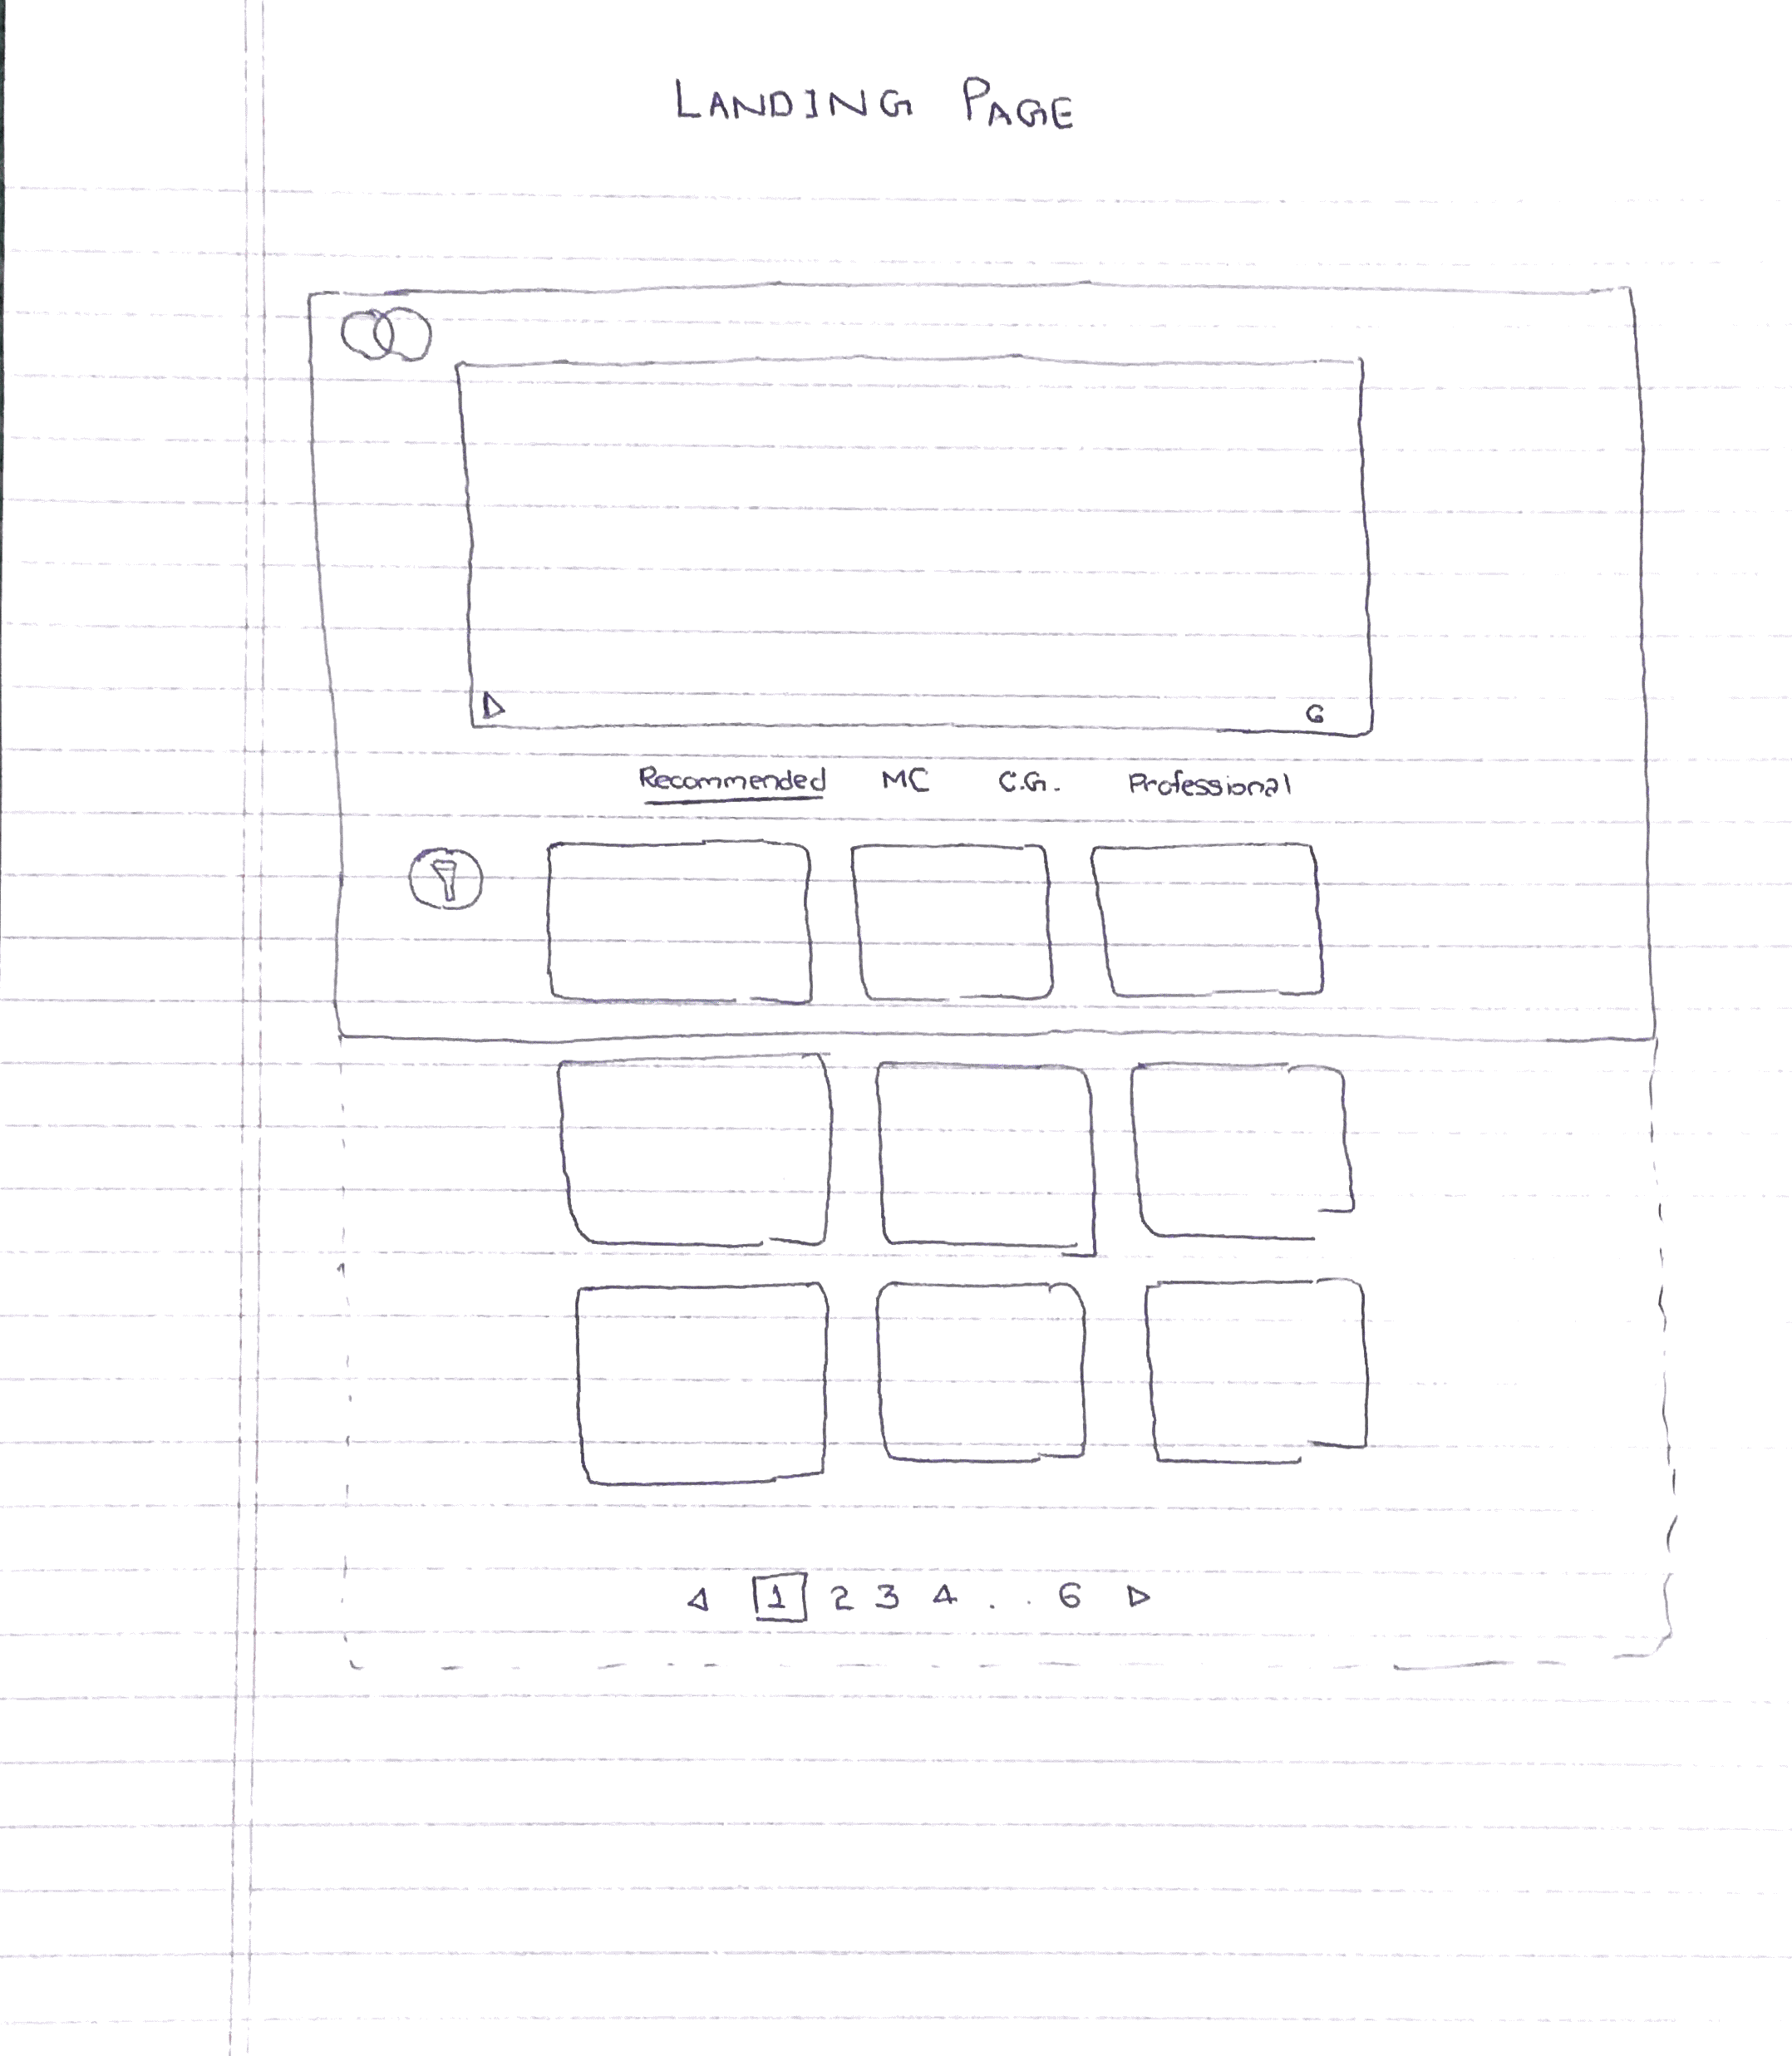 LANDING PAGE
G
Recommended MC C.G. Professional
1 2 3 4 . . 6